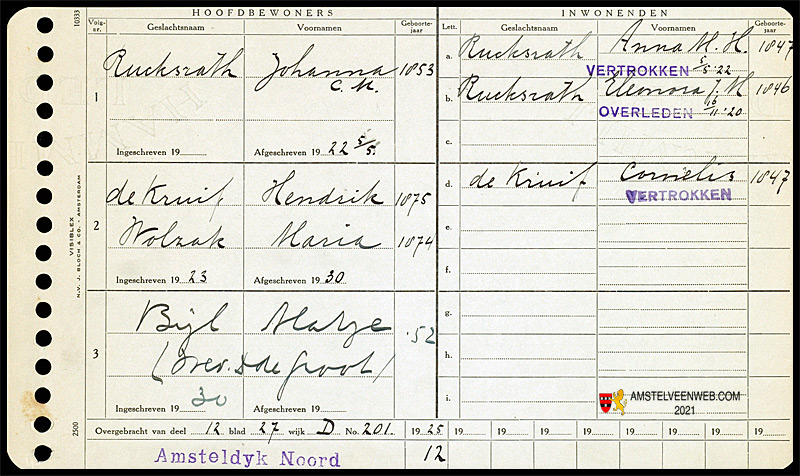 HOOFDBEWONERS INWONENDEN
Volg-nr. Geslachtsnaam Voornamen Geboorte-jaar Lett. Geslachtsnaam Voornamen Geboorte-jaar
1 Rucksrath Johanna C. M. 1853
Ingeschreven 19 Afgeschreven 19 22 5/5
a. Rucksrath Anna M. H. 1847
VERTROKKEN 5/5 '22
b. Rucksrath Eleonora J. M 1846
OVERLEDEN 16/11 '20
c.
2 de Kruif Hendrik 1875
Wolzak Maria 1874
Ingeschreven 19 23 Afgeschreven 19 30
d. de Kruif Cornelis 1847
VERTROKKEN
e.
f.
3 Bijl '52
de Groot)
Ingeschreven 19 30 Afgeschreven 19
g.
h.
i.
AMSTELVEENWEB.COM
2021
Overgebracht van deel 12 blad 27 wijk D No. 201. 19 25 19 19 19 19 19 19 19
Amsteldyk Noord 12
10333
VISIBLEX
N.V. J. BLOCH & CO. - AMSTERDAM
2500